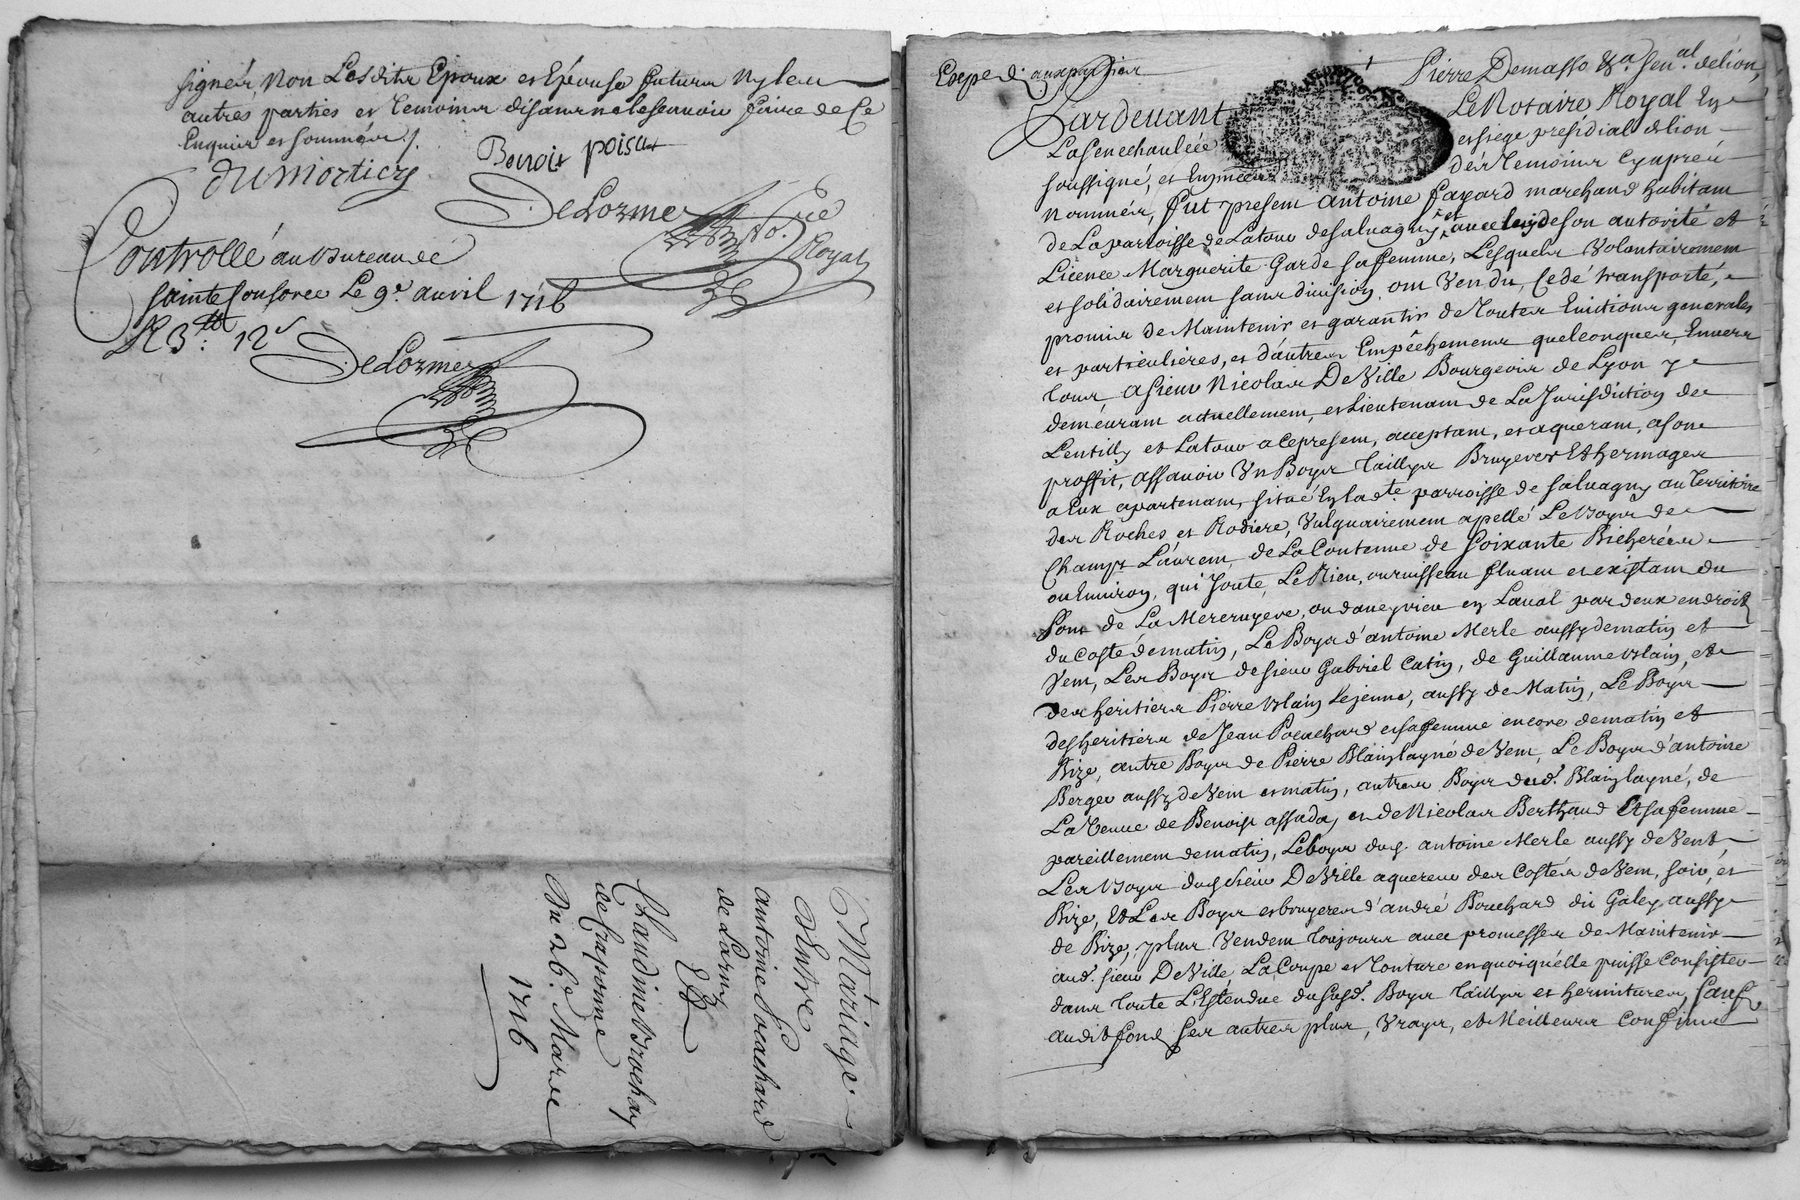 signér, Non Lesdits Epoux et Epouse futurs Ny leu
autres parties et temoins disant ne lescavoir faire de Ce
Enquis et sommér /.
Dumortier
Benoist poisat
DeLorme
No.re
Royal
Controllé au bureau de
sainte Consorce Le 9e avril 1716
R 3tt: 12s
DeLorme
Mariage
d'Entre
antoine Pocachard
de Larny
Et
Claudine brochay
de Craponne
Du 26e Mars
1716
Pierre Demasso &a. Sen.al de lion,
Pardevant Le Notaire Royal En
La Senechaulcée et siege présidial de lion
soussigné, et En présence des Temoins cy aprés
nommés, fut present antoine fayard marchand habitant
de La parroisse de La tour de salvagny, et avec luy de son autorité et
Licence Marguerite Garde sa femme, Lesquels Volontairement
et solidairement sans division, ont Vendu, Cedé transporté,
promis de Maintenir et garantir de toutes Evictions generales
et particulières, et d'autres Empêchements quelconques, Envers
tous, a sieur Nicolas DeVille Bourgeois de Lyon y
demeurant actuellement, et Lieutenant de La Jurisdiction de
Lentilly et Latour a ce present, acceptant, et aquerant, a son
proffit, assavoir Vn Boyr taillys Bruyeres Et hermages
a Eux apartenant, situé En lad.te parroisse de salvagny au Territoire
des Roches et Rodiere, Vulguairement apellé Le boyr de
Champt Laurent, de La Contenue de soixante Bicherées
ou Environ, qui Joute, Le Rieu, ou ruisseau fluant et existant du
font de La Mereruyere, ou daneyrieu en Laval par deux endroits
du Costé de matin, Le Boyr d'antoine Merle aussy de matin et
Vent, Les Boyr de sieur Gabriel Catin, de Guillaume blain, et
des heritiers Pierre blain Lejeune, aussy de Matin, Le Boyr
des heritiers de Jean Pocachard et sa femme encore de matin et
Bize, autre Boyr de Pierre Blain layné de Vent, Le Boyr d'antoine
Berger aussy de Vent et matin, autres Boyr dud. Blain layné, de
La Veuve de Benoist assada, et de Nicolas Berthaud Et sa femme
pareillement de matin, Le boyr dud. antoine Merle aussy de Vent,
Les boyr dud. sieur DeVille aquereur des Costés de Vent, soir, et
Bize, Et Les Boyr et bruyeres d'andré Bouchard du Galey aussy
de Bize, plus Vendent toujours avec promesses de Maintenir
aud. sieur DeVille La Coupe et tonture en quoiqu'elle puisse Consister
dans toute L'Estendue du susd. Boyr taillys et hermitures, sauf
audit fond ses autres plus, Vrays, et Meilleurs Confins